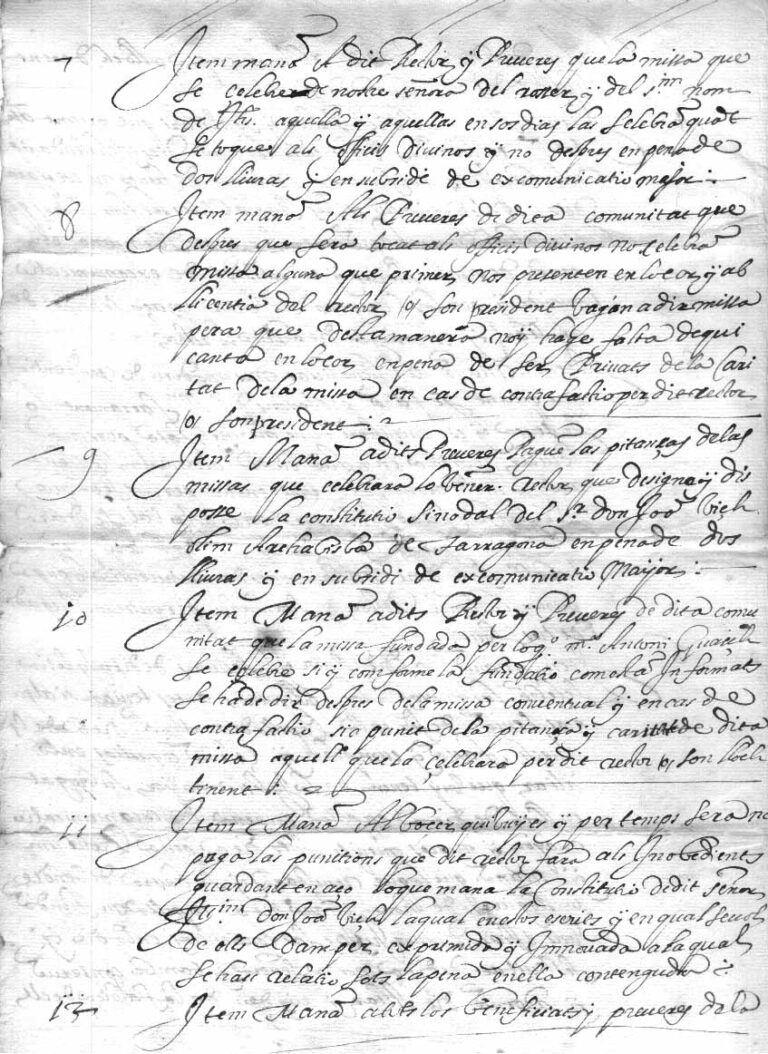 7 Item mana A dit Rector y Preveres que la missa que
se celebre de nostre señora del roser y del s.im nom
de Jhs. aquella y aquellas en sos dias las selebrã quãt
se toque als officis divinos y no despres en pena de
dos lliuras y en subsidi de excomunicatio major :
8 Item mana Als Preveres de dita comunitat que
despres que sera tocat als officis divinos no celebrã
missa alguna que primer nos presenten en lo cor y ab
llicentia del rector o son president vagan a dir missa
pera que desta manera noy haze falta de qui
canta en lo cor en pena de ser Privats de la Cari
tat de la missa en cas de contrafactio per dit rector
o son president :
9 Item Mana a dits Preveres Paguẽ las pitanças de las
missas que celebrara lo vener. rector que designa y dis
posse la constitutio sinodal del s.r don Joã Vich
olim Archabisbe de Tarragona en pena de dos
lliuras y en subsidi de excomunicatio Major :
10 Item Mana a dits Rector y Preveres de dita comu
nitat que la missa fundada per lo q.o m.o Antoni
se celebre si y conforme la fundatio com es la Informats
se ha de dir despres de la missa conventual y en cas de
contrafactio sia punit de la pitança y caritat de dita
missa aquell que la çelebrara per dit rector o son lloch
tinent :
11 Item Mana Al bocer qui vuy es y per temps sera no
paga las punitions que dit rector fara als Inobedients
guardant en aço lo que mana la Constitutio de dit señor
Ill.im don Joã Vich la qual en los escrits y en qualsevol
de ells damper exprimida y Innovada a la qual
se hasc relatio sots la pena en ella contenguda :
12 Item Mana a dits los beneficiats y preveres de la